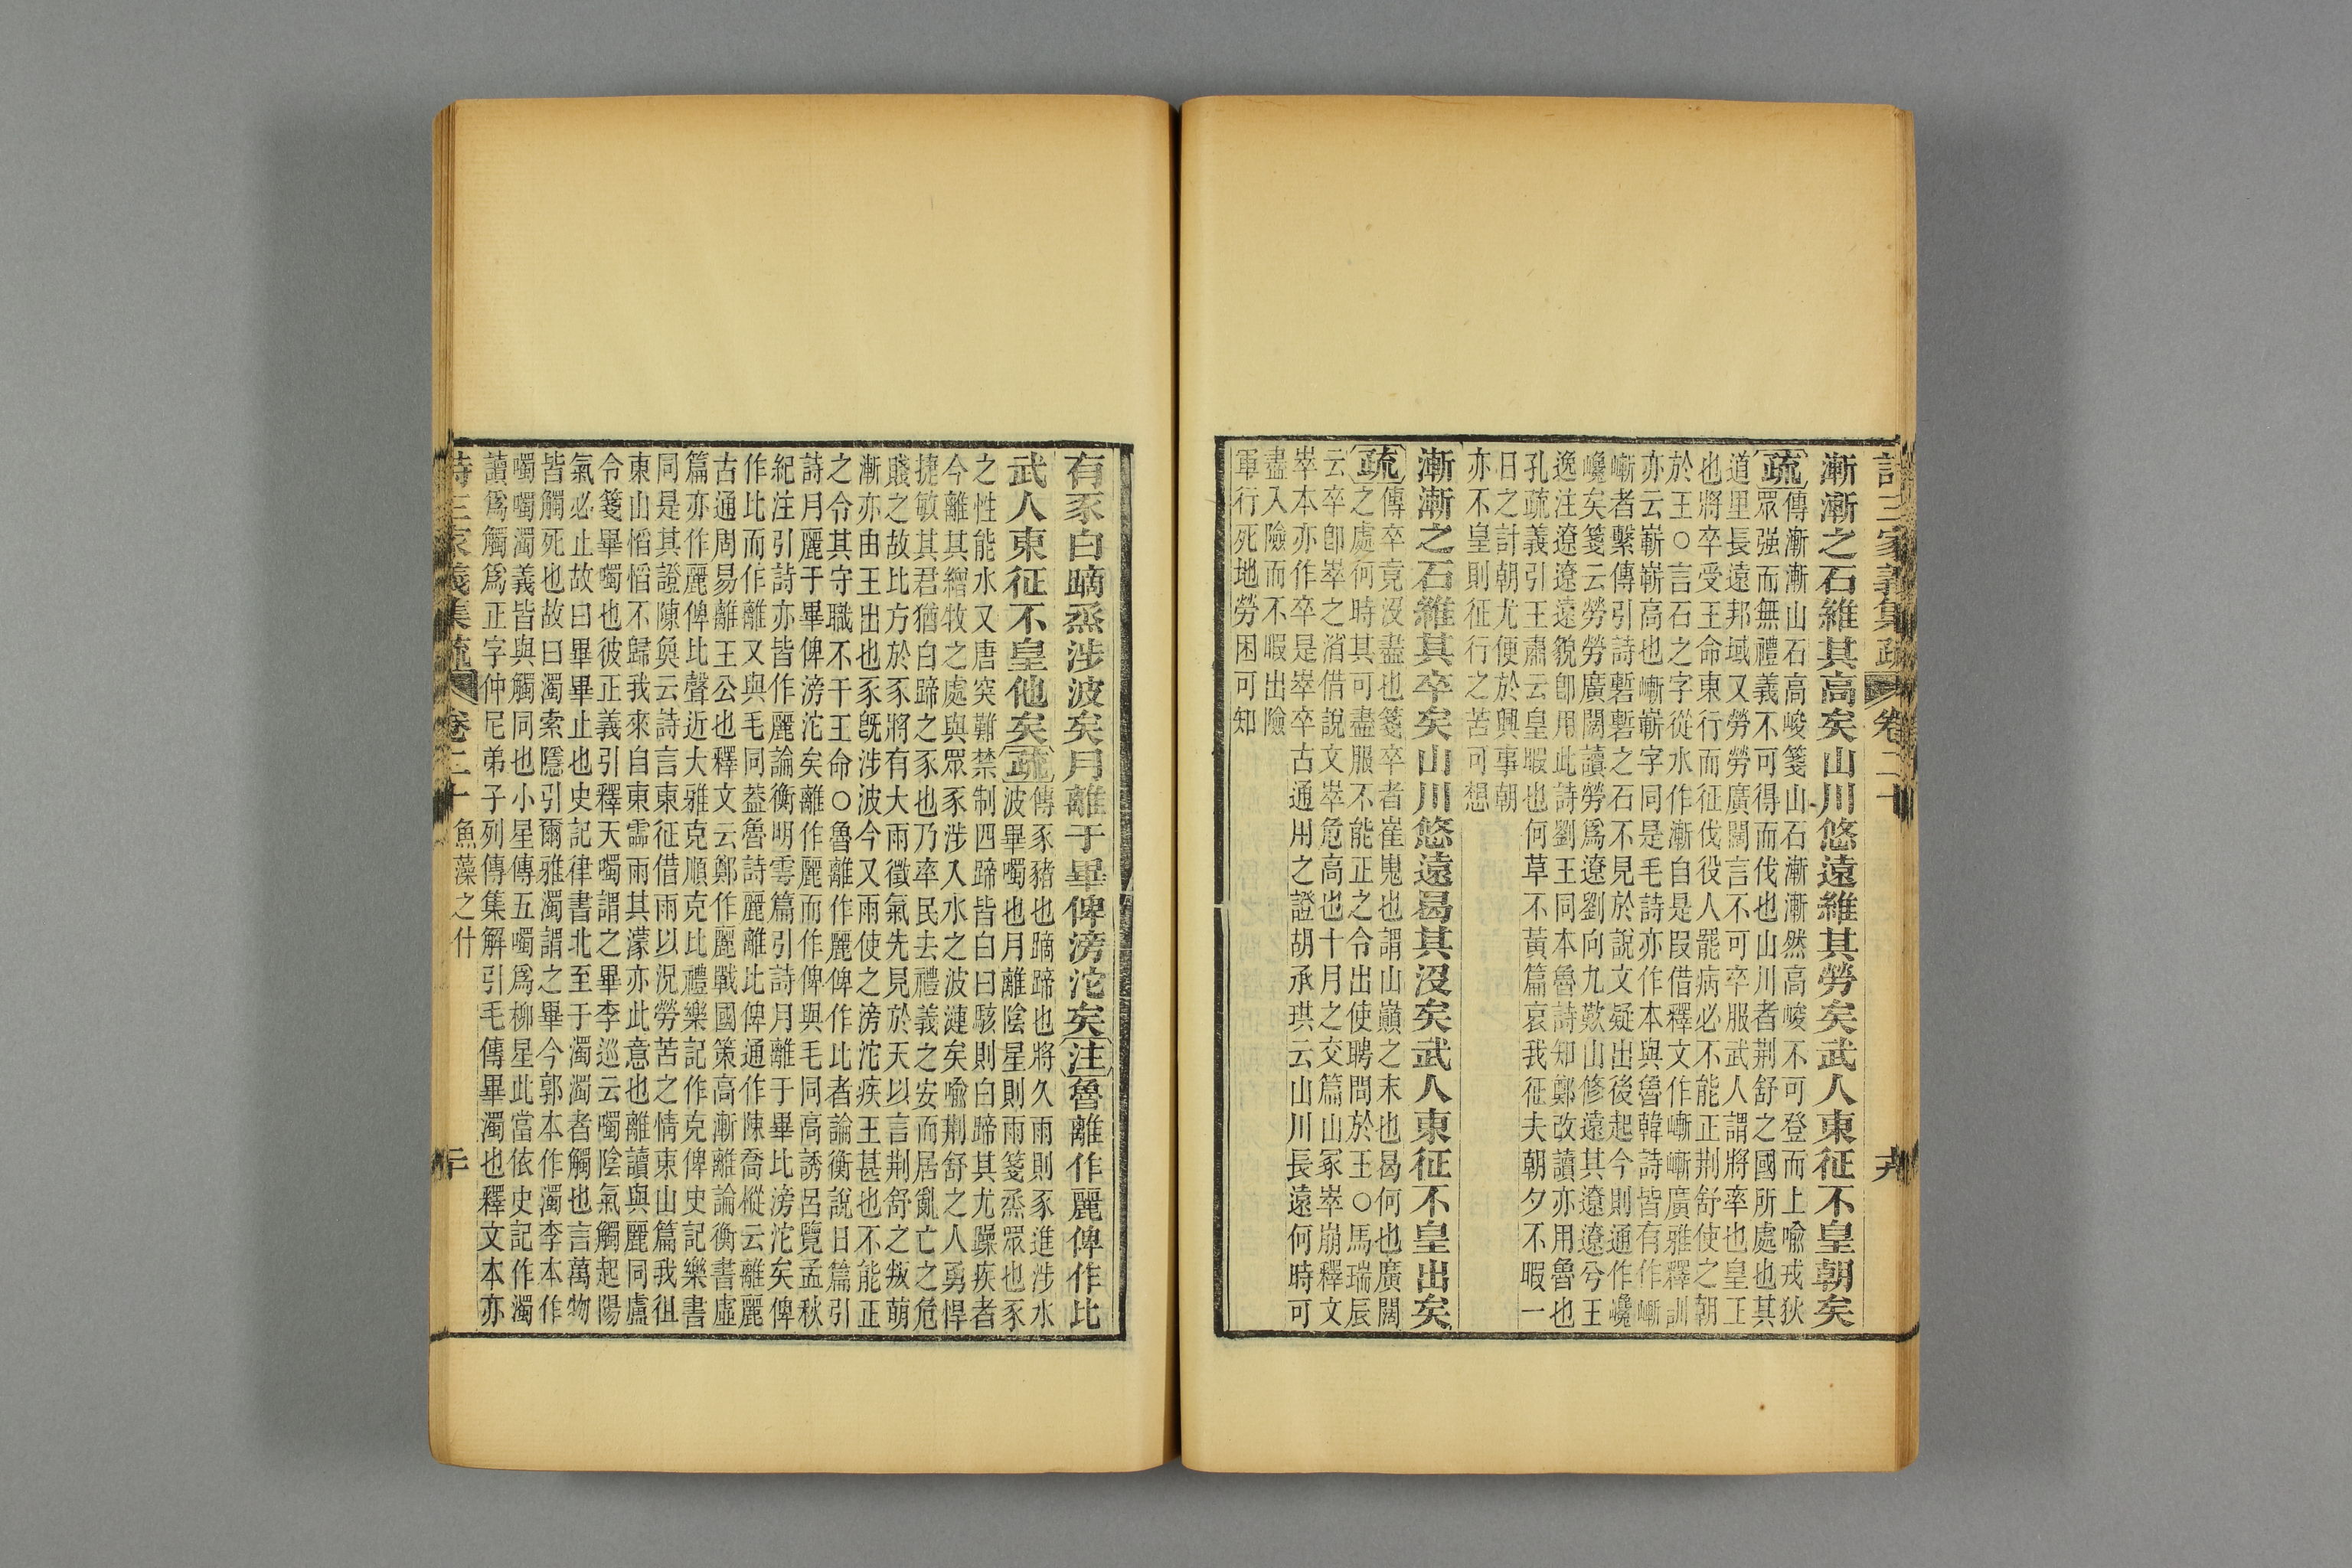 詩三家義集疏 卷二十
漸漸之石維其高矣山川悠遠維其勞矣武人東征不皇朝矣
疏 傳漸漸山石高峻箋山石漸漸然高峻不可登而上喻戎狄
眾强而無禮義不可得而伐也山川者荆舒之國所處也其
道里長遠邦域又勞勞廣闊言不可卒服武人謂將率也皇王
也將卒受王命東行而征伐役人罷病必不能正荆舒使之朝
於王○言石之字從水作漸自是叚借釋文作嶃嶃廣雅釋訓
亦云嶄嶄高也嶃嶄字同是毛詩亦作本與魯韓詩皆有作嶃
嶃者繫傳引詩磛磛之石不見於說文疑出後起今則通作巉
巉矣箋云勞勞廣闊讀勞爲遼劉向九歎山修遠其遼遼兮王
逸注遼遼遠貌卽用此詩劉王同本魯詩知鄭改讀亦用魯也
孔疏義引王肅云皇暇也何草不黃篇哀我征夫朝夕不暇一
日之計朝尤便於興事朝
亦不皇則征行之苦可想
漸漸之石維其卒矣山川悠遠曷其沒矣武人東征不皇出矣
疏 傳卒竟沒盡也箋卒者崔嵬也謂山巔之末也曷何也廣闊
之處何時其可盡服不能正之令出使聘問於王○馬瑞辰
云卒卽崒之消借說文崒危高也十月之交篇山冢崒崩釋文
崒本亦作卒是崒卒古通用之證胡承珙云山川長遠何時可
盡入險而不暇出險
軍行死地勞困可知
有豕白蹢烝涉波矣月離于畢俾滂沱矣注魯離作麗俾作比
武人東征不皇他矣疏 傳豕豬也蹢蹄也將久雨則豕進涉水
波畢噣也月離陰星則雨箋烝眾也豕
之性能水又唐突難禁制四蹄皆白曰駭則白蹄其尤躁疾者
今離其繒牧之處與眾豕涉入水之波漣矣喻荆舒之人勇悍
捷敏其君猶白蹄之豕也乃率民去禮義之安而居亂亡之危
賤之故比方於豕將有大雨徵氣先見於天以言荆舒之叛萌
漸亦由王出也豕旣涉波今又雨使之滂沱疾王甚也不能正
之令其守職不干王命○魯離作麗俾作比者論衡說日篇引
詩月麗于畢俾滂沱矣離作麗而作俾與毛同高誘呂覽孟秋
紀注引詩亦皆作麗論衡明雩篇引詩月離于畢比滂沱矣俾
作比而作離又與毛同葢魯詩麗離比俾通作陳喬樅云離麗
古通周易離王公也釋文云鄭作麗戰國策高漸離論衡書虛
篇亦作麗俾比聲近大雅克順克比禮樂記作克俾史記樂書
同是其證陳奐云詩言東征借雨以況勞苦之情東山篇我徂
東山慆慆不歸我來自東霝雨其濛亦此意也離讀與麗同盧
令箋畢噣也彼正義引釋天噣謂之畢李巡云噣陰氣觸起陽
氣必止故曰畢畢止也史記律書北至于濁濁者觸也言萬物
皆觸死也故曰濁索隱引爾雅濁謂之畢今郭本作濁李本作
噣噣濁義皆與觸同也小星傳五噣爲柳星此當依史記作濁
讀爲觸爲正字仲尼弟子列傳集解引毛傳畢濁也釋文本亦
詩三家義集疏 卷二十 魚藻之什